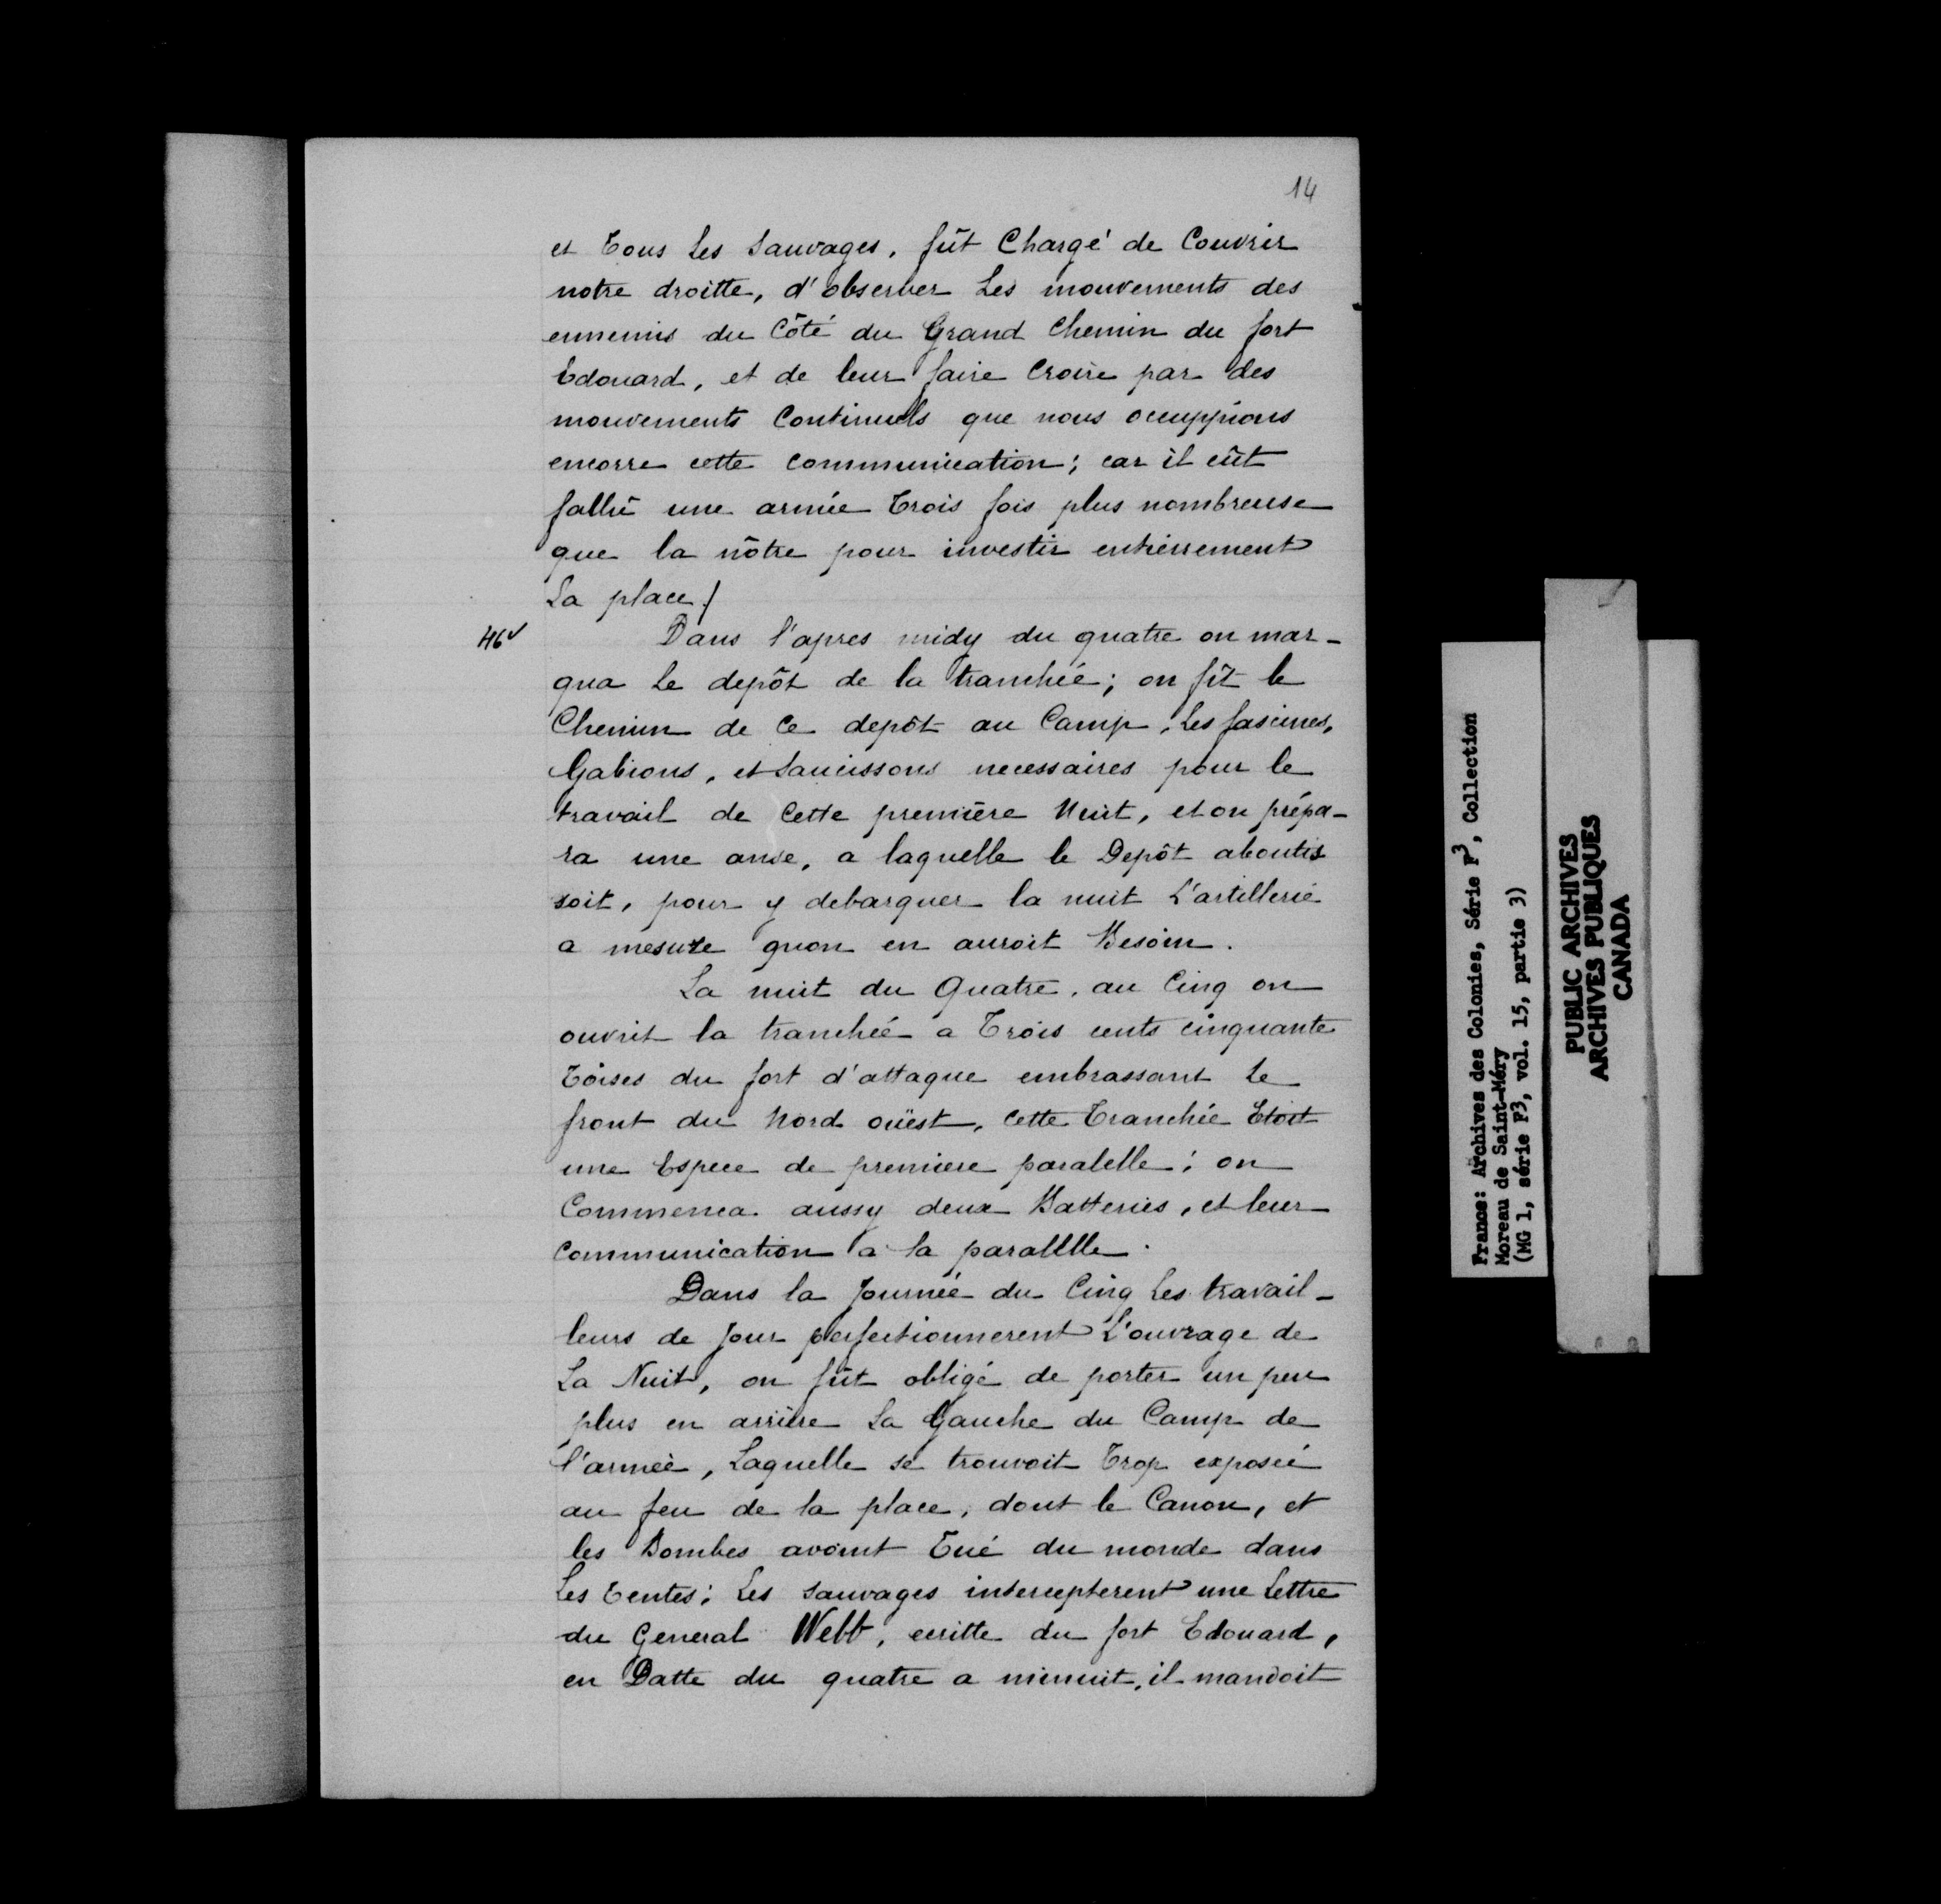 14
et Tous Les Sauvages, fût Chargé de Couvrir
notre droitte, d'observer Les mouvements des
ennemis du Côté du Grand Chemin du fort
Edouard, et de leur faire Croire par des
mouvements Continuels que nous occuppions
encorre cette communication; car il eût
fallû une armée Trois fois plus nombreuse
que la nôtre pour investir entièrrement
La place /
46v
Dans l'apres midy du quatre on mar-
qua Le depôt de la tranchée; on fît le
Chemin de Ce depôt au Camp, Les fascines,
Gabions, et Saucissons necessaires pour le
travail de Cette première Nuit, et on prépa-
ra une anse, a laquelle le Depôt aboutis
soit, pour y debarquer la nuit L'artillerie
a mesure quon en auroit Besoin.
La nuit du Quatre, au Cinq on
ouvrit la tranchée a Trois cents cinquante
Toises du fort d'attaque embrassant Le
front du Nord oüest, Cette Tranchée Etoit
une Espece de premiere paralelle; on
Commenca aussy deux Batteries, et leur
communication a la paralelle.
Dans la Journée du Cinq Les travail-
leurs de Jour perfectionnerent L'ouvrage de
La Nuit, on fût obligé de porter un peu
plus en arrière La Gauche du Camp de
l'armée, Laquelle se trouvoit Trop exposée
au feu de la place, dont le Canon, et
les Bombes avoint Tué du monde dans
Les Tentes; Les Sauvages intercepterent une Lettre
du General Webb, ecritte du fort Edouard,
en Datte du quatre a minuit, il mandoit
France: Archives des Colonies, Série F3, Collection
Moreau de Saint-Méry
(MG 1, série F3, vol. 15, partie 3)
PUBLIC ARCHIVES
ARCHIVES PUBLIQUES
CANADA